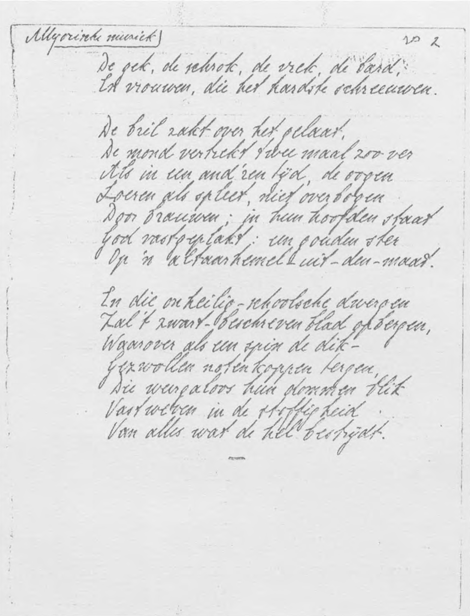 Allegorische muziek
20 2
De gek, de schrok, de vrek, de bard,
En vrouwen, die het hardste schreeuwen.
De bril zakt over het gelaat,
De mond vertrekt twee maal zoo ver
Als in een and'ren tijd, de oogen
Loeren als spleet, niet overbogen
Door brauwen; in hun hoofden staat
God vastgeplakt: een gouden ster
Op 'n altaarhemel-uit-den-maat.
En die onheilig-schoolsche dwergen
Zal 't zwart-beschreven blad opbergen,
Waarover als een spin de dik-
Gezwollen notenkoppen tergen,
Die weergaloos hun dommen blik
Vastweven in de stoffigheid
Van alles wat de hel bestrijdt.